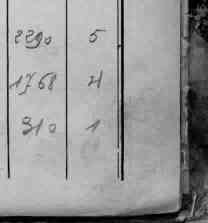 2290 5
1768 4
310 1